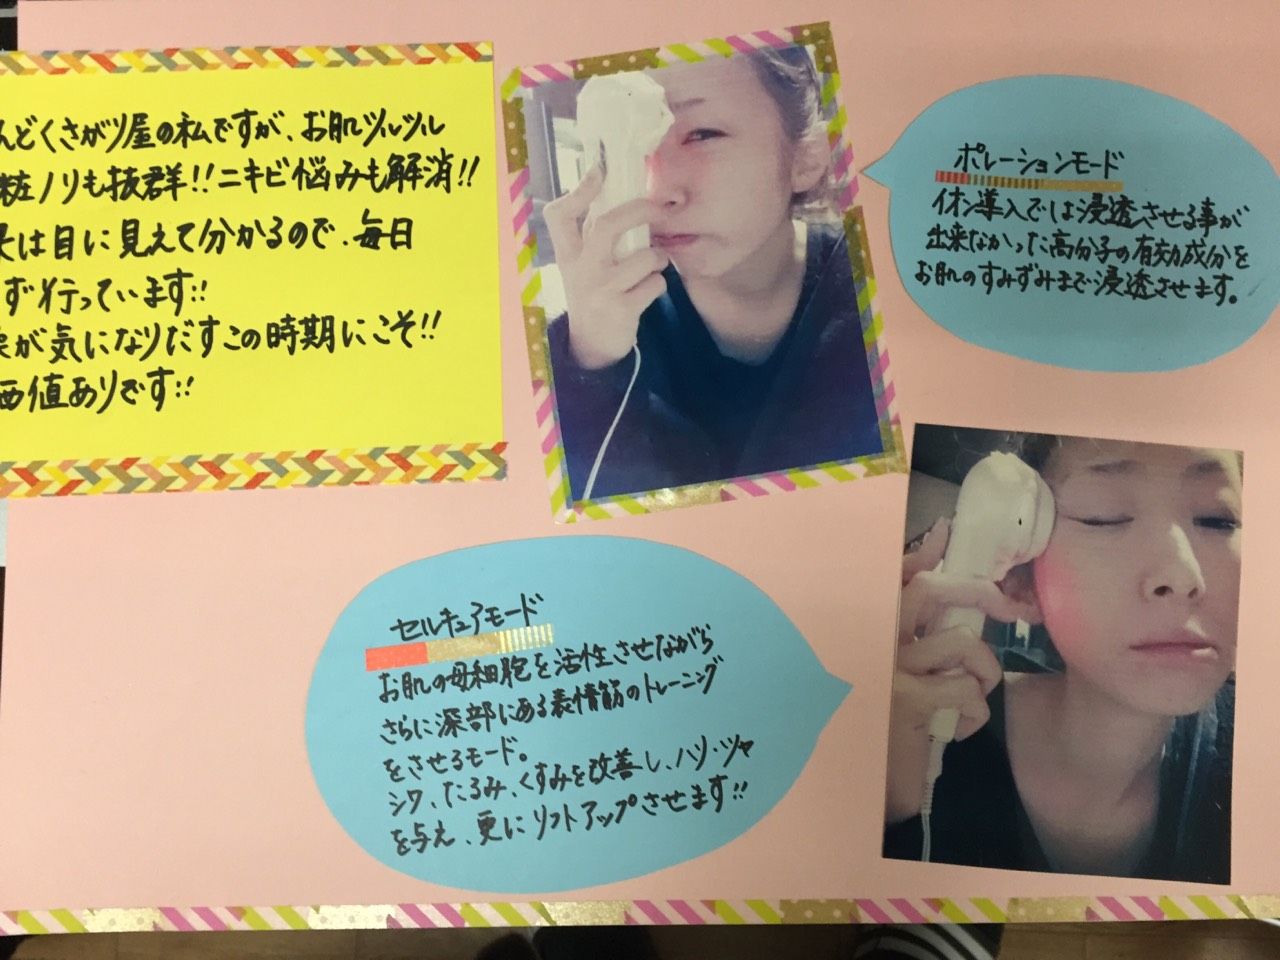 んどくさがり屋の私ですが、お肌ツルツル
粧ノリも抜群!!ニキビ悩みも解消!!
は目に見えて分かるので、毎日
ず行っています!!
が気になりだすこの時期にこそ!!
価値ありです!!
ポレーションモード
イオン導入では浸透させる事が
出来なかった高分子の有効成分を
お肌のすみずみまで浸透させます。
セルキュアモード
お肌の母細胞を活性させながら
さらに深部にある表情筋のトレーニング
をさせるモード。
シワ、たるみ、くすみを改善し、ハリ・ツヤ
を与え、更にリフトアップさせます!!